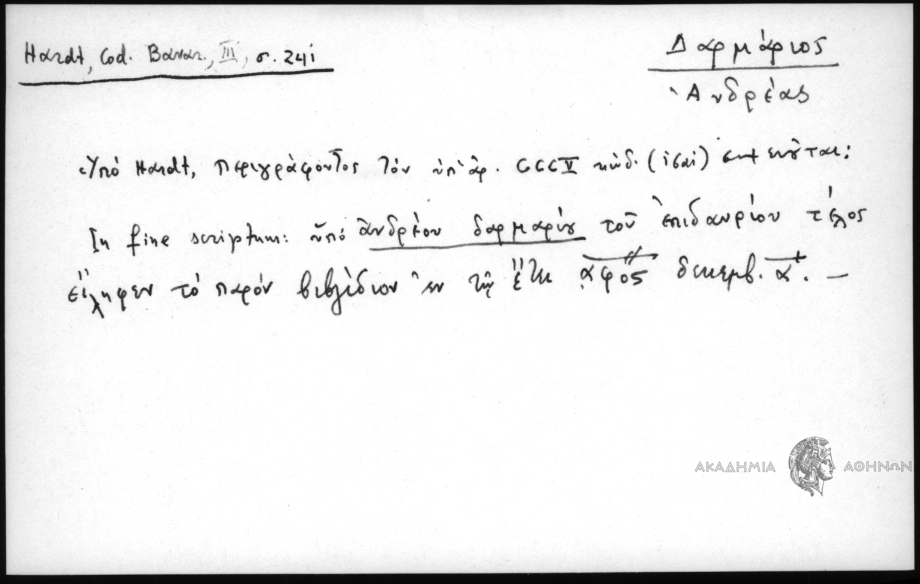 Hardt, Cod. Bavar., III, σ. 241
Δαρμάριος
Ἀνδρέας
Ὑπό Hardt, περιγράφοντος τόν ὑπ' ἀρ. CCCV κώδ.
In fine scriptum: ὑπό ἀνδρέου δαρμαρίου τοῦ ἐπιδαυρίου τέλος
εἴληφεν τό παρόν βιβλίδιον ἐν τῷ ἔτει αφος δεκεμβ. α. —
ΑΚΑΔΗΜΙΑ ΑΘΗΝΩΝ